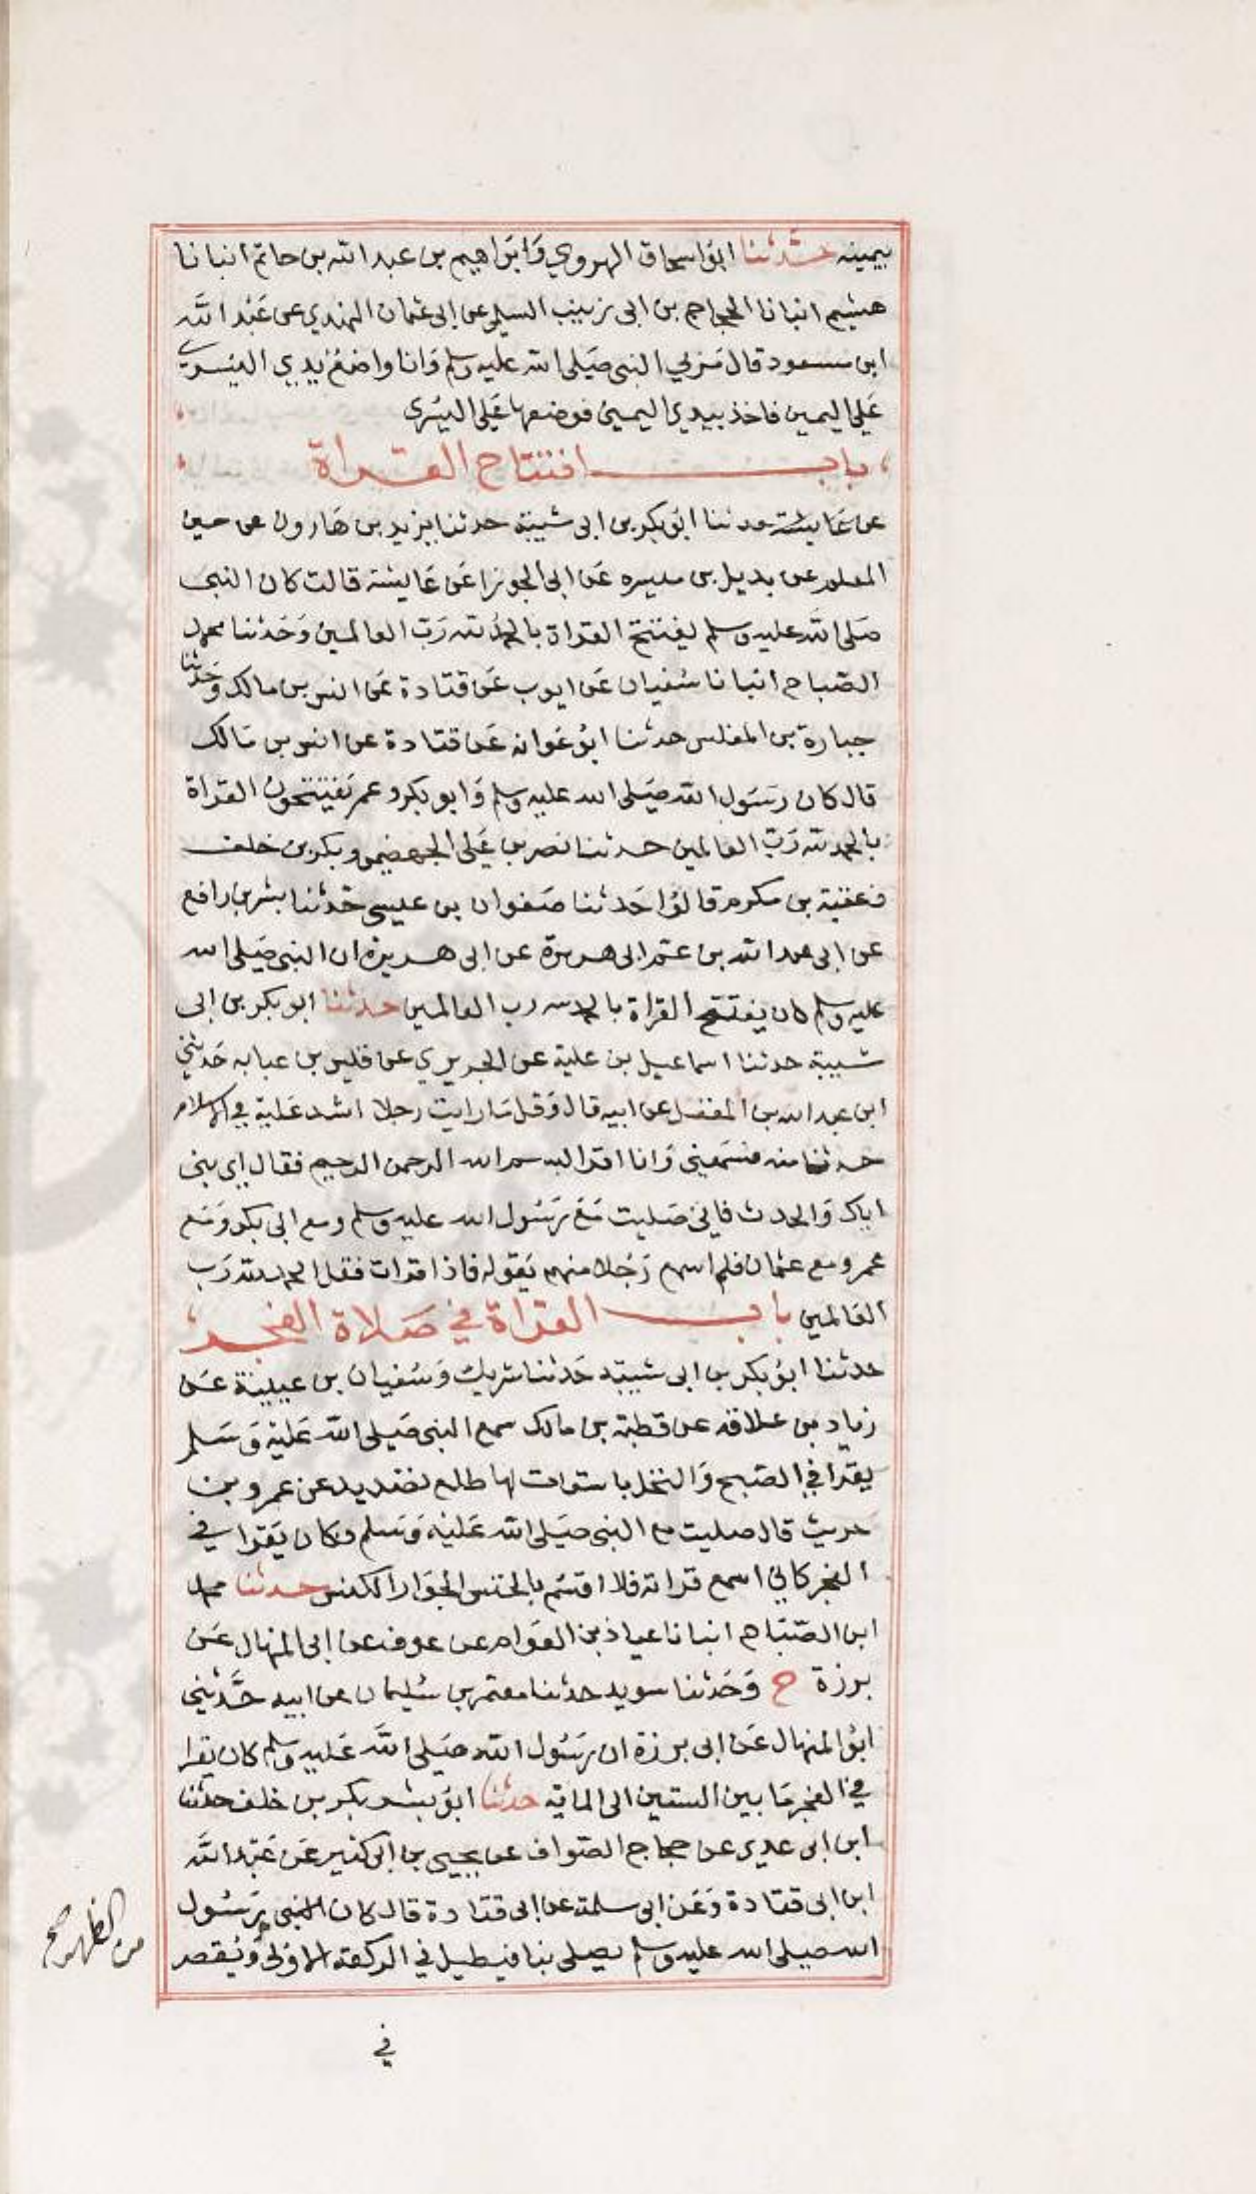 بيمينه حدثنا ابو اسحاق الهروي وابراهيم بن عبد الله بن حاتم انبانا
هشيم انبانا الحجاج بن ابى زينب السلمى عن ابى عثمان النهدي عن عبد الله
ابن مسعود قال مر بي النبى صلى الله عليه وسلم وانا واضع يدي اليسرى
على اليمين فاخذ بيدي اليمين فوضعها على اليسرى
باب افتتاح القراة
عن عايشة حدثنا ابو بكر بن ابى شيبة حدثنا يزيد بن هارون عن حسين
المعلم عن بديل بن ميسره عن ابى الجوزا عن عايشة قالت كان النبى
صلى الله عليه وسلم يفتتح القراة بالحمد لله رب العالمين وحدثنا محمد
الصباح انبانا سفيان عن ايوب عن قتادة عن انس بن مالك وحدثنا
جبارة بن المغلس حدثنا ابو عوانه عن قتادة عن انس بن مالك
قال كان رسول الله صلى الله عليه وسلم وابو بكر وعمر يفتتحون القراة
بالحمد لله رب العالمين حدثنا نصر بن على الجهضمى وبكر بن خلف
وعقبة بن مكرم قالوا حدثنا صفوان بن عيسى حدثنا بشر بن رافع
عن ابى عبد الله بن عم ابى هريرة عن ابى هريره ان النبى صلى الله
عليه وسلم كان يفتتح القراة بالحمد لله رب العالمين حدثنا ابو بكر بن ابى
شيبة حدثنا اسماعيل بن علية عن الجريري عن قيس بن عبايه حدثني
ابن عبد الله بن المغفل عن ابيه قال وقل ما رايت رجلا اشد عليه في الاسلام
حدثا منه فسمعني وانا اقرا بسم الله الرحمن الرحيم فقال اي بنى
اياك والحدث فاني صليت مع رسول الله عليه وسلم ومع ابى بكر ومع
عمر ومع عثمان فلم اسمع رجلا منهم يقوله فاذا قرات فقل الحمد لله رب
العالمين باب القراة في صلاة الفجر
حدثنا ابو بكر بن ابى شيبة حدثنا شريك وسفيان بن عيينة عن
زياد بن علاقه عن قطبة بن مالك سمع النبى صلى الله عليه وسلم
يقرا في الصبح والنخل باسقات لها طلع نضيد عن عمرو بن
حريث قال صليت مع النبى صلى الله عليه وسلم وكان يقرا في
الفجر كاني اسمع قراته فلا اقسم بالخنس الجوار الكنس حدثنا محمد
ابن الصباح انبانا عباد بن العوام عن عوف عن ابى المنهال عن
برزة ح وحدثنا سويد حدثنا معتمر بن سليمان عن ابيه حدثني
ابو المنهال عن ابى برزة ان رسول الله صلى الله عليه وسلم كان يقرا
في الفجر ما بين الستين الى الماية حدثنا ابو بشر بكر بن خلف حدثنا
ابن ابى عدي عن حجاج الصواف عن يحيى بن ابى كثير عن عبد الله
ابن ابى قتادة وعن ابى سلمة عن ابى قتادة قال كان النبى رسول
الله صلى الله عليه وسلم يصلى بنا فيطيل في الركعة الاولى ويقصر
من الظهر صح
في